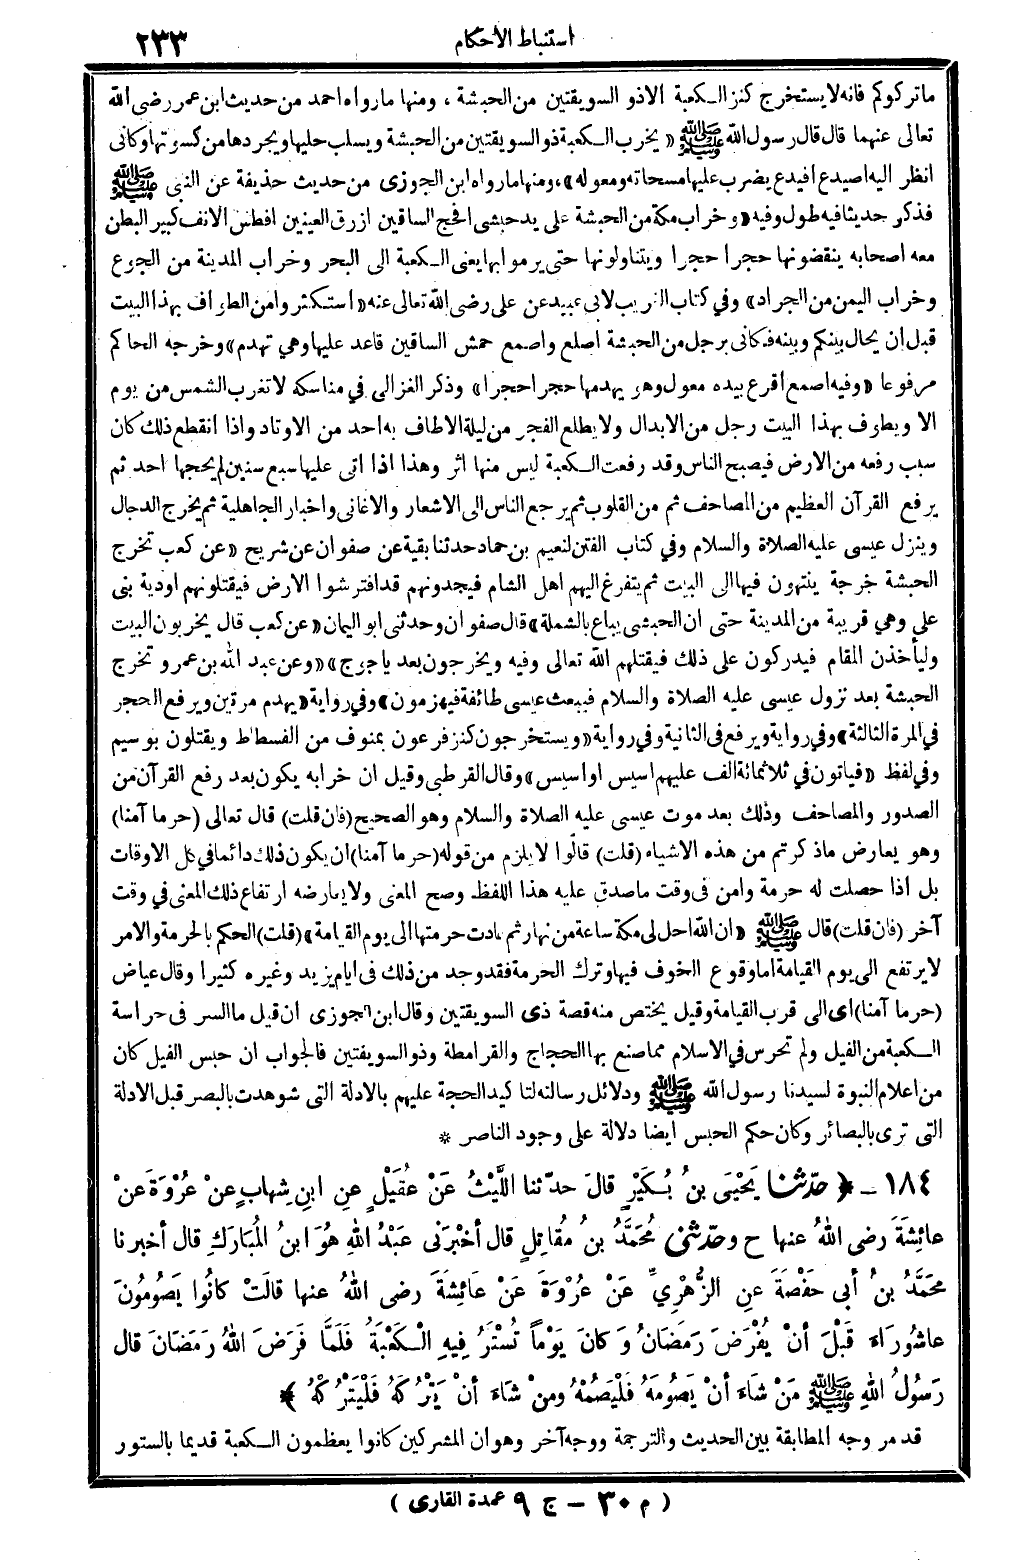 استنباط الأحكام ٢٣٣
ماتركوكم فانه لا يستخرج كنز الكعبة الا ذو السويقتين من الحبشة ، ومنها مارواه احمد من حديث ابن عمر رضى الله
تعالى عنهما قال قال رسول الله ﷺ « يخرب الكعبة ذو السويقتين من الحبشة ويسلب حليها ويجردها من كسوتها وكانى
انظر اليه اصيدع افيدع يضرب عليها بمسحاته ومعوله » ، ومنها مارواه ابن الجوزى من حديث حذيفة عن النبى ﷺ
فذكر حديثا فيه طول وفيه « وخراب مكة من الحبشة على يد حبشى افحج الساقين ازرق العينين افطس الانف كبير البطن
معه اصحابه ينقضونها حجرا حجرا ويتناولونها حتى يرموا بها يعنى الكعبة الى البحر وخراب المدينة من الجوع
وخراب اليمن من الجراد » وفي كتاب الغريب لابى عبيد عن على رضى الله تعالى عنه « استكثروا من الطواف بهذا البيت
قبل ان يحال بينكم وبينه فكانى برجل من الحبشة اصلع واصمع حمش الساقين قاعد عليها وهي تهدم » وخرجه الحاكم
مرفوعا « وفيه اصمع اقرع بيده معول وهو يهدمها حجرا حجرا » وذكر الغزالى في مناسكه لا تغرب الشمس من يوم
الا ويطوف بهذا البيت رجل من الابدال ولا يطلع الفجر من ليلة الا طاف به احد من الاوتاد واذا انقطع ذلك كان
سبب رفعه من الارض فيصبح الناس وقد رفعت الكعبة ليس منها اثر وهذا اذا اتى عليها سبع سنين لم يحجها احد ثم
يرفع القرآن العظيم من المصاحف ثم من القلوب ثم يرجع الناس الى الاشعار والاغانى واخبار الجاهلية ثم يخرج الدجال
وينزل عيسى عليه الصلاة والسلام وفي كتاب الفتن لنعيم بن حماد حدثنا بقية عن صفوان عن شريح « عن كعب تخرج
الحبشة خرجة ينتهون فيها الى البيت ثم يتفرغ اليهم اهل الشام فيجدونهم قد افترشوا الارض فيقتلونهم اودية بنى
على وهي قريبة من المدينة حتى ان الحبشى يباع بالشملة » قال صفوان وحدثنى ابو اليمان « عن كعب قال يخربون البيت
وليأخذن المقام فيدركون على ذلك فيقتلهم الله تعالى وفيه ويخرجون بعد ياجوج » « وعن عبد الله بن عمرو تخرج
الحبشة بعد نزول عيسى عليه الصلاة والسلام فيبعث عيسى طائفة فيهزمون » وفي رواية « يهدم مرتين ويرفع الحجر
في المرة الثالثة » وفي رواية ويرفع في الثانية وفي رواية « ويستخرجون كنز فرعون بمنوف من الفسطاط ويقتلون بوسيم
وفي لفظ « فياتون في ثلاثمائة الف عليهم اسيس او اسيس » وقال القرطبى وقيل ان خرابه يكون بعد رفع القرآن من
الصدور والمصاحف وذلك بعد موت عيسى عليه الصلاة والسلام وهو الصحيح (فان قلت) قال تعالى (حرما آمنا)
وهو يعارض ماذكرتم من هذه الاشياء (قلت) قالوا لا يلزم من قوله (حرما آمنا) ان يكون ذلك دائما في كل الاوقات
بل اذا حصلت له حرمة وامن فى وقت ما صدق عليه هذا اللفظ وصح المعنى ولا يعارضه ارتفاع ذلك المعنى في وقت
آخر (فان قلت) قال ﷺ « ان الله احل لى مكة ساعة من نهار ثم عادت حرمتها الى يوم القيامة » (قلت) الحكم بالحرمة والامر
لا يرتفع الى يوم القيامة اما وقوع الخوف فيها وترك الحرمة فقد وجد من ذلك فى ايام يزيد وغيره كثيرا وقال عياض
(حرما آمنا) اى الى قرب القيامة وقيل يختص منه قصة ذى السويقتين وقال ابن الجوزى ان قيل ما السر فى حراسة
الكعبة من الفيل ولم تحرس في الاسلام مما صنع بها الحجاج والقرامطة وذو السويقتين فالجواب ان حبس الفيل كان
من اعلام النبوة لسيدنا رسول الله ﷺ ودلائل رسالته لتاكيد الحجة عليهم بالادلة التى شوهدت بالبصر قبل الادلة
التى ترى بالبصائر وكان حكم الحبس ايضا دلالة على وجود الناصر *
١٨٤ - ﴿ حدّثنا يَحْيَى بنُ بُكَيْرٍ قالَ حدّثنا اللَّيْثُ عَنْ عُقَيْلٍ عنِ ابنِ شِهابٍ عنْ عُرْوَةَ عنْ
عائِشَةَ رضى اللهُ عنها ح وحدّثنى مُحَمَّدُ بنُ مُقاتِلٍ قال أخبْرَنى عَبْدُ اللهِ هُوَ ابنُ المُبَارَكِ قال أخبرنا
محَمَّدُ بنُ أبى حَفْصَةَ عنِ الزُّهْرِيِّ عَنْ عُرْوَةَ عَنْ عائِشَةَ رضى اللهُ عنها قالَتْ كانُوا يَصُومُونَ
عاشُورَاءَ قَبْلَ أنْ يُفْرَضَ رَمَضَانُ وَكانَ يَوْماً تُسْتَرُ فِيهِ الْكَعْبَةُ فَلَمَّا فَرَضَ اللهُ رَمَضَانَ قال
رَسُولُ اللهِ ﷺ مَنْ شاءَ أنْ يَصُومَهُ فَلْيَصُمْهُ ومنْ شَاءَ أنْ يَتْرُكَهُ فَلْيَتْرُكْهُ ﴾
قد مر وجه المطابقة بين الحديث والترجمة ووجه آخر وهو ان المشركين كانوا يعظمون الكعبة قديما بالستور
( م ٣٠ - ج ٩ عمدة القارى )